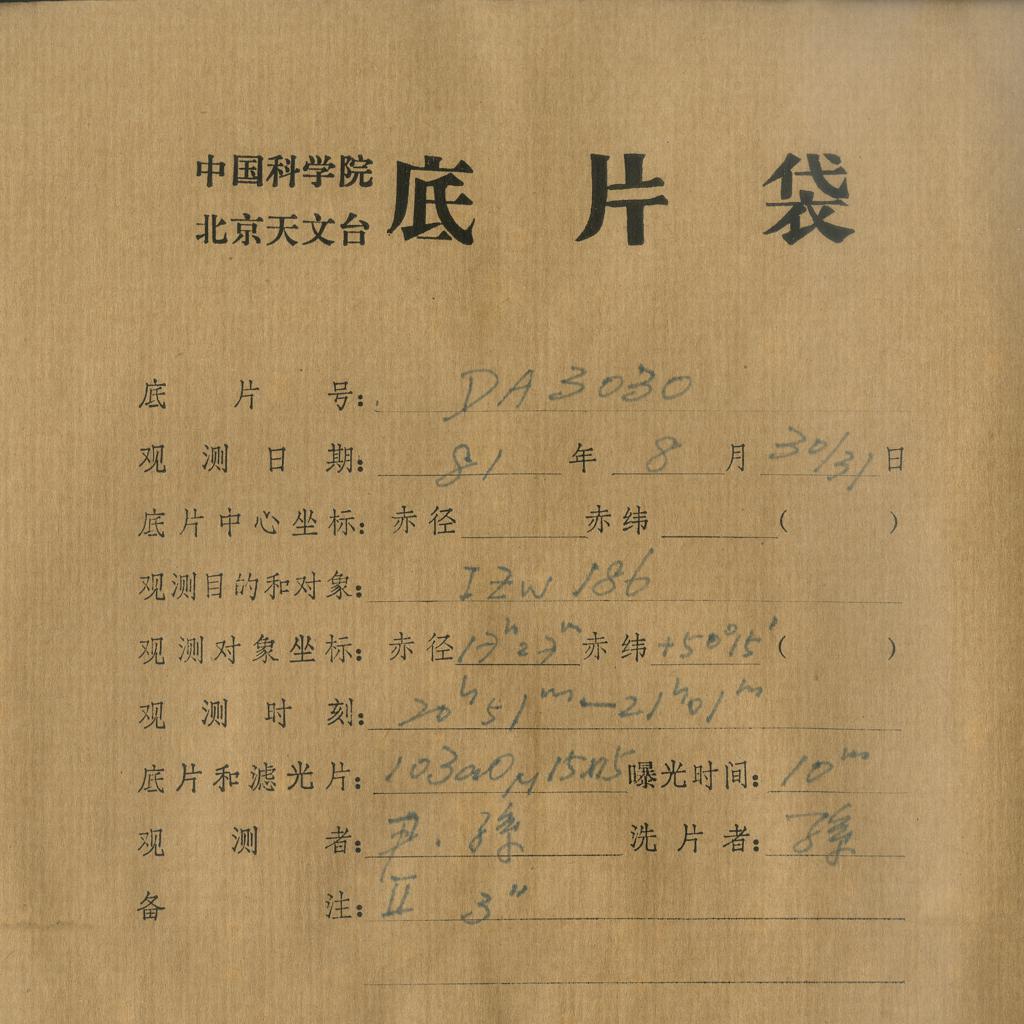 中国科学院
北京天文台
底片袋
底片号: DA3030
观测日期: 81年8月30/31日
底片中心坐标: 赤径 赤纬 ( )
观测目的和对象: IZw 186
观测对象坐标: 赤径17ʰ27ᵐ赤纬+50°15′( )
观测时刻: 20ʰ51ᵐ—21ʰ01ᵐ
底片和滤光片: 103aO 15x15 曝光时间: 10ᵐ
观测者: 尹.孫 洗片者: 孫
备注: II 3"